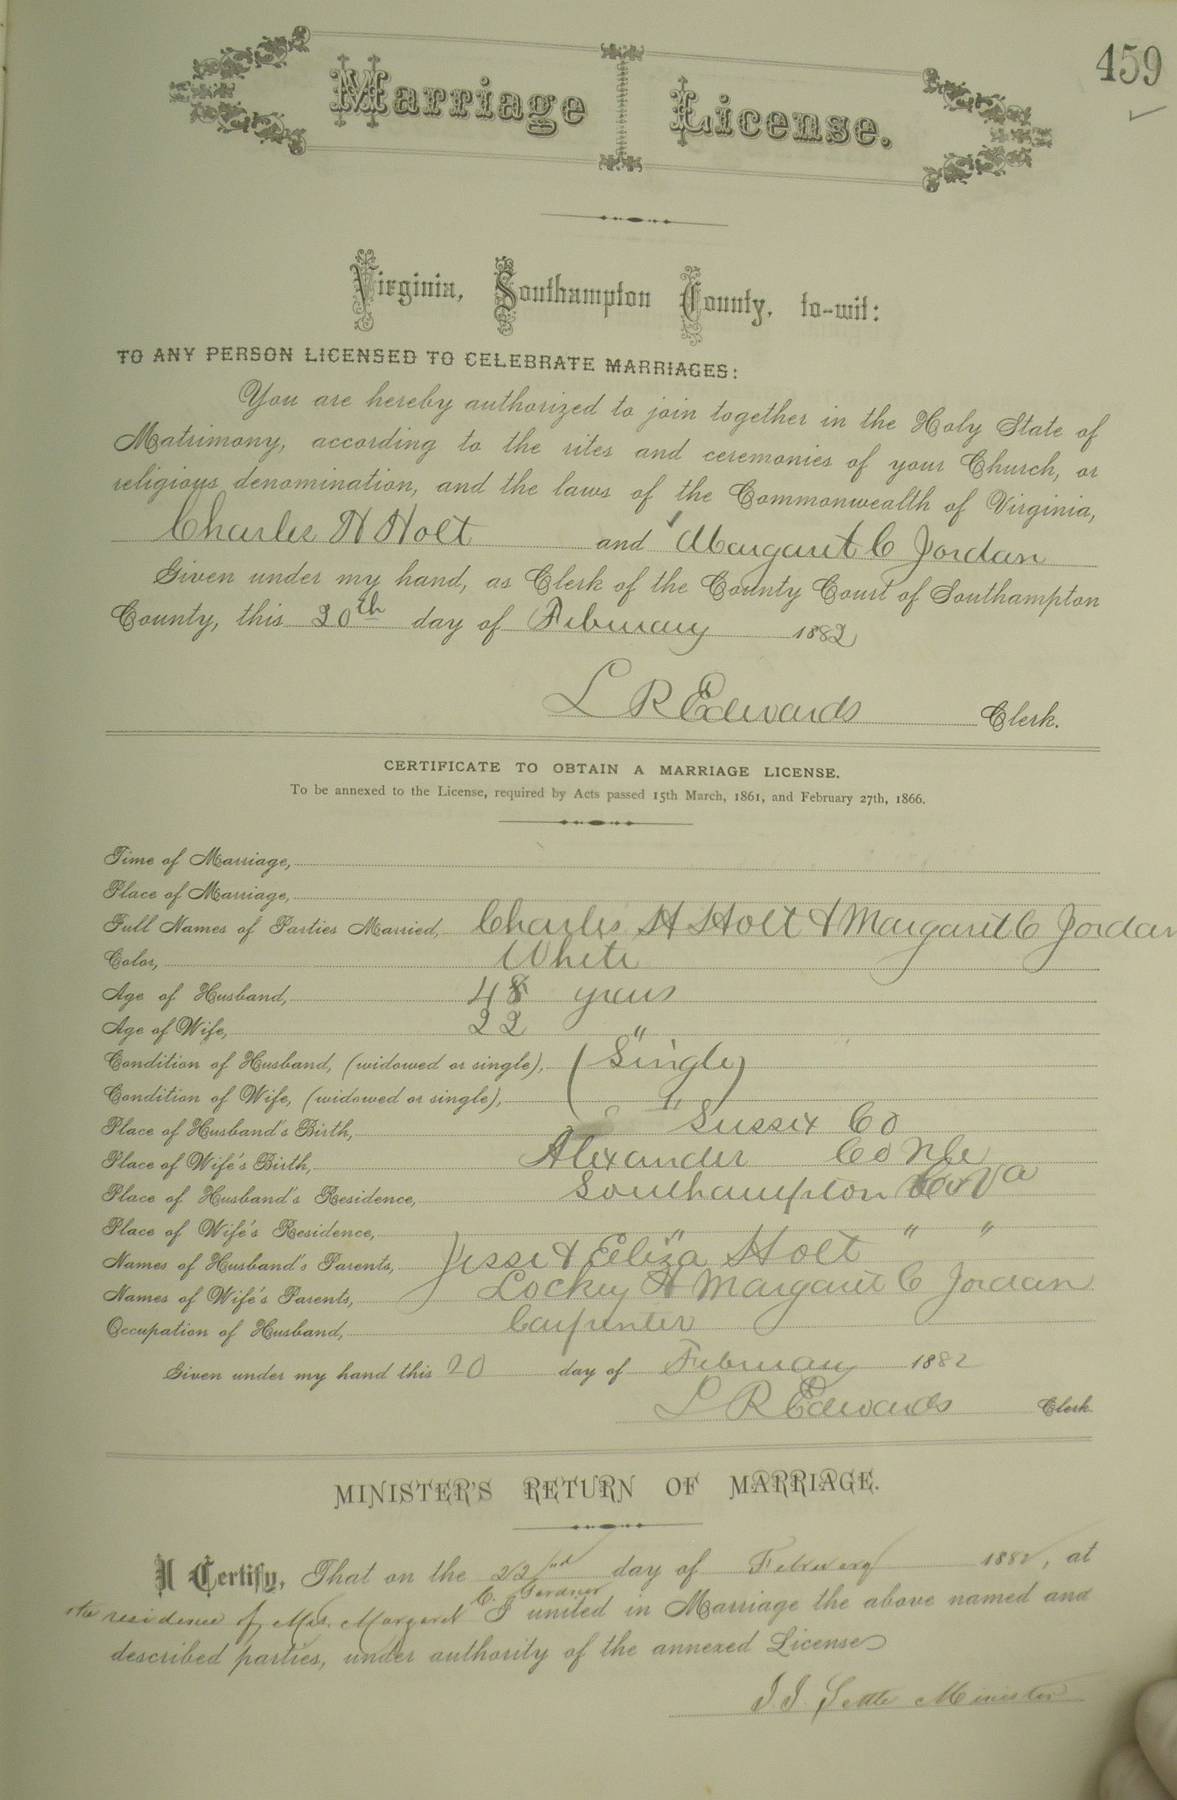 459
Marriage License.
Virginia, Southampton County, to-wit:
TO ANY PERSON LICENSED TO CELEBRATE MARRIAGES:
You are hereby authorized to join together in the Holy State of
Matrimony, according to the rites and ceremonies of your Church, or
religious denomination, and the laws of the Commonwealth of Virginia,
Charles H Holt and Margaret C Jordan
Given under my hand, as Clerk of the County Court of Southampton
County, this 20th day of February 1882
L R Edwards Clerk.
CERTIFICATE TO OBTAIN A MARRIAGE LICENSE.
To be annexed to the License, required by Acts passed 15th March, 1861, and February 27th, 1866.
Time of Marriage,
Place of Marriage,
Full Names of Parties Married, Charles H Holt & Margaret C Jordan
Color, White
Age of Husband, 48 years
Age of Wife, 22 "
Condition of Husband, (widowed or single), (Single)
Condition of Wife, (widowed or single), "
Place of Husband's Birth, Sussex Co
Place of Wife's Birth, Alexander Co N Ce
Place of Husband's Residence, Southampton Co Va
Place of Wife's Residence, " " "
Names of Husband's Parents, Jesse & Eliza Holt
Names of Wife's Parents, Lockey H Margaret C Jordan
Occupation of Husband, Carpenter
Given under my hand this 20 day of February 1882
L R Edwards Clerk
MINISTER'S RETURN OF MARRIAGE.
I Certify, That on the 22nd day of February 1882, at
the residence of Mrs. Margaret C. Gardner I united in Marriage the above named and
described parties, under authority of the annexed License
J. J. Settle Minister